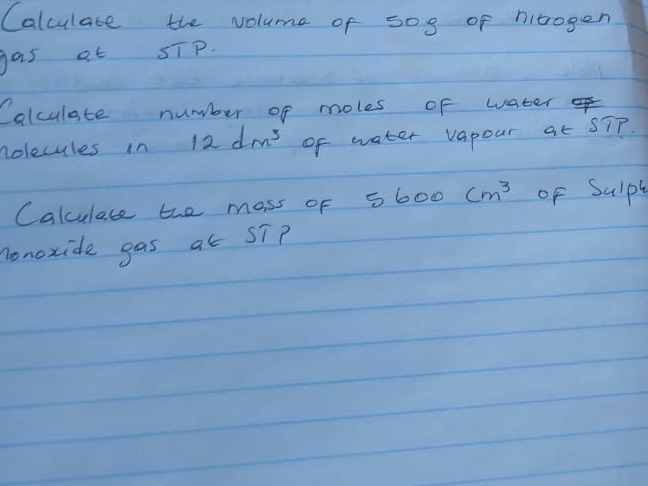 Calculate the volume of 50g of nitrogen
gas at STP.
Calculate number of moles of water of
molecules in 12 dm³ of water vapour at STP.
Calculate the mass of 5600 cm³ of Sulph
monoxide gas at STP